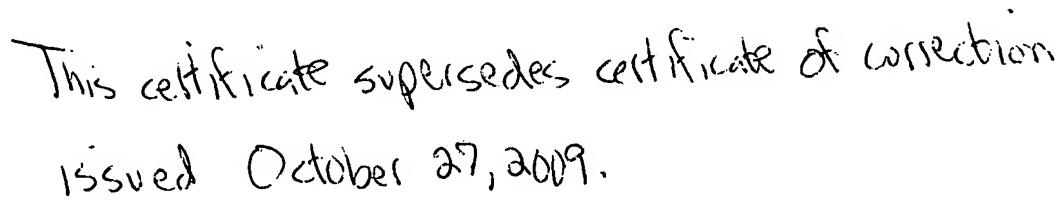 This certificate supersedes certificate of correction
issued October 27, 2009.